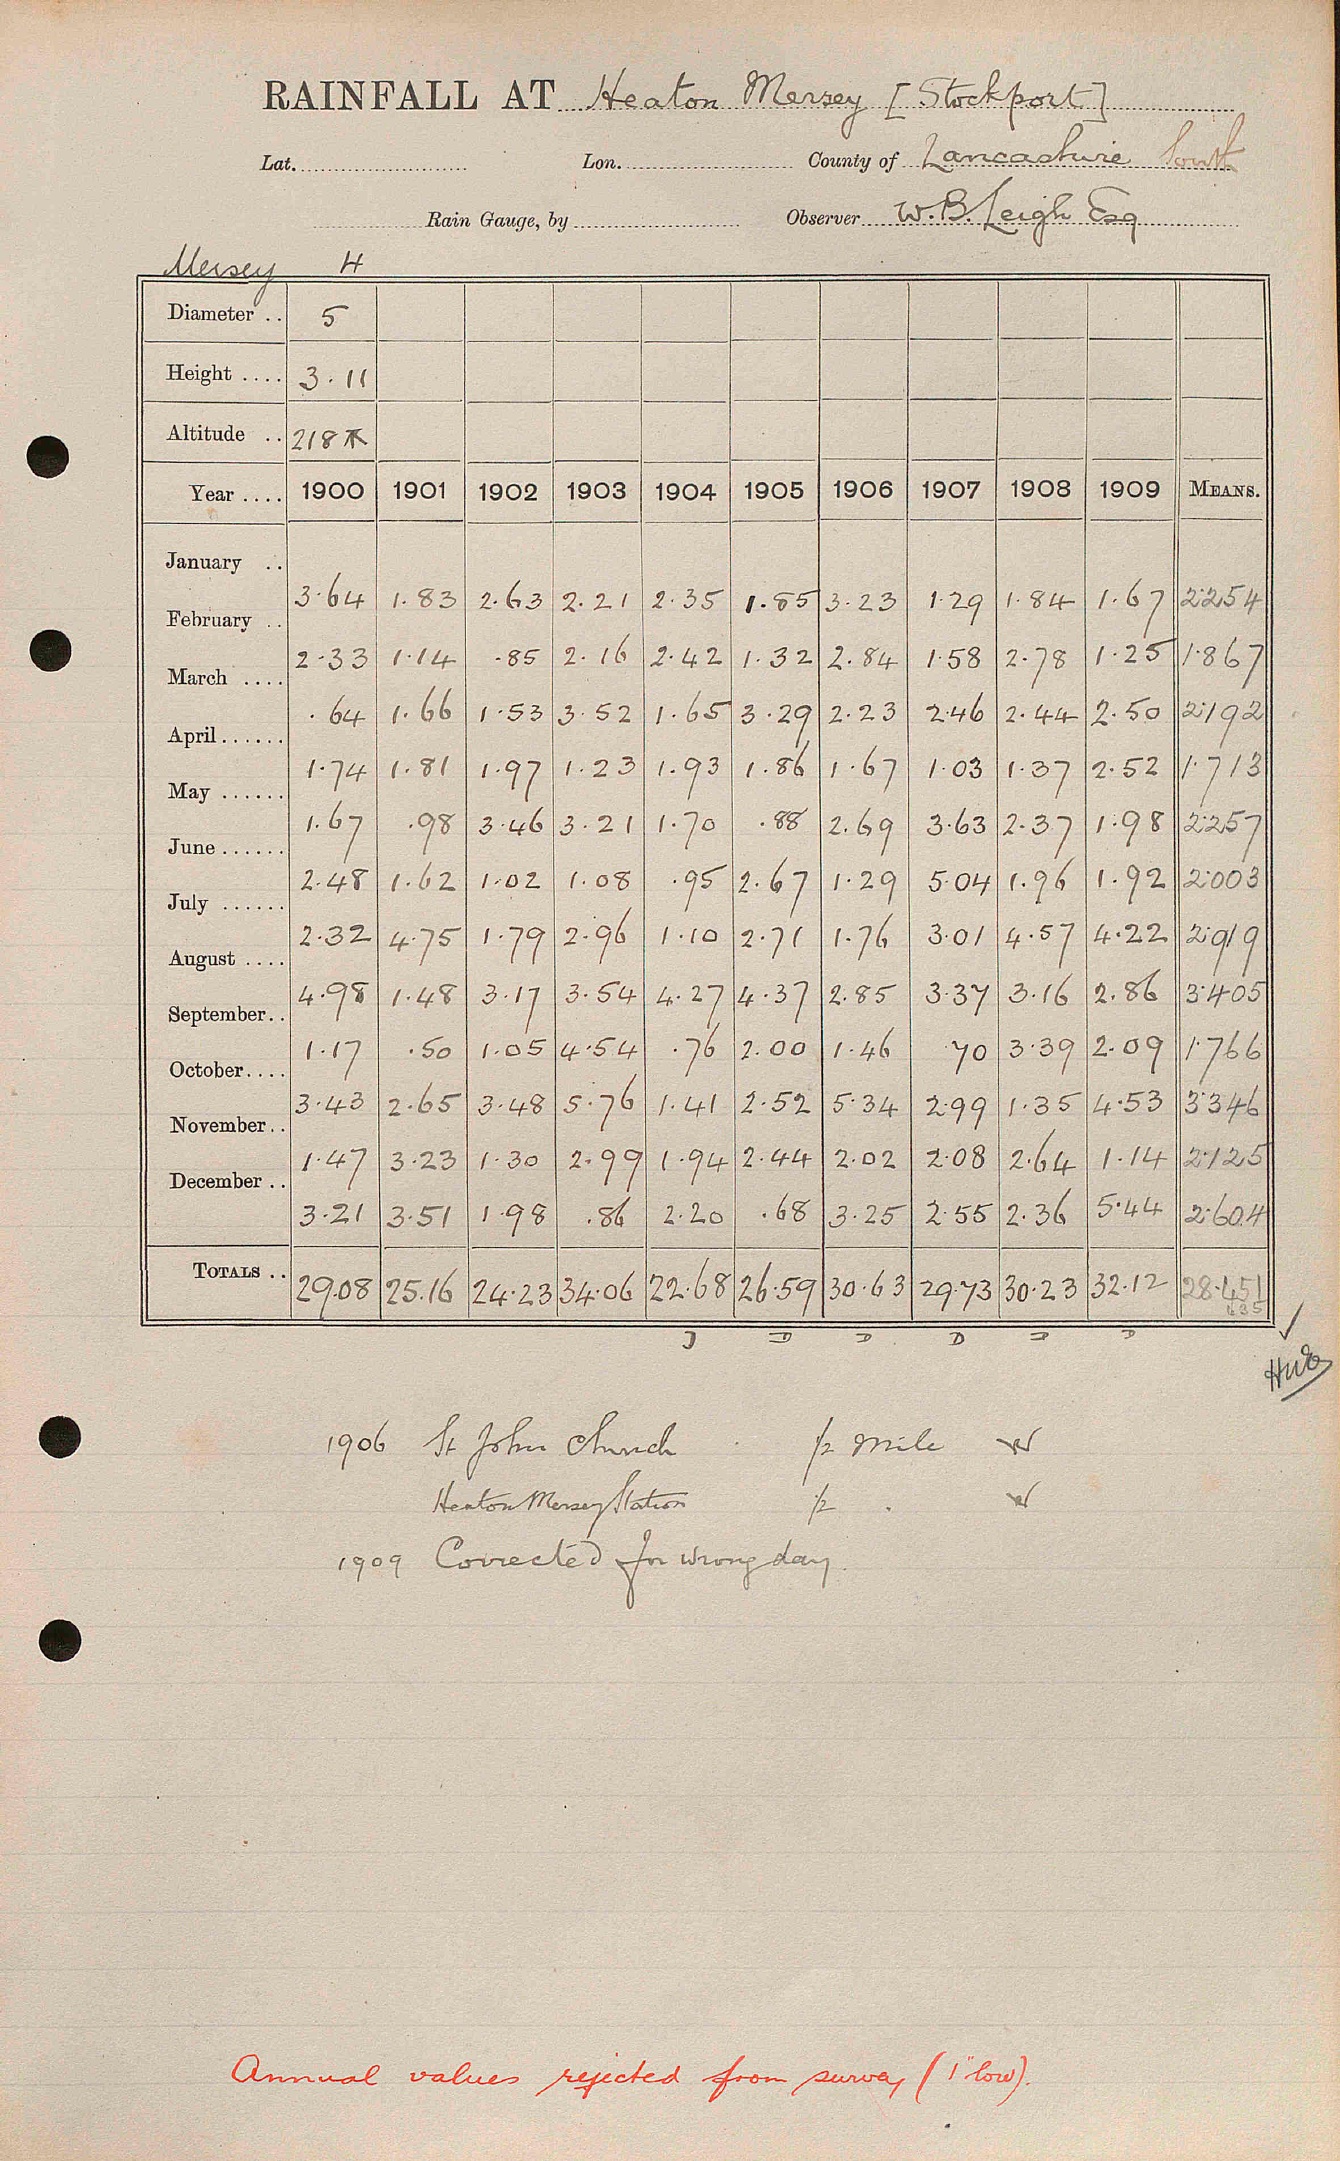 RAINFALL AT Heaton Mersey [Stockport]
Lat. Lon. County of Lancashire South
Rain Gauge, by Observer W. B. Leigh Esq
Mersey 4
Diameter .. 5
Height .... 3.11
Altitude .. 218
Year .... 1900 1901 1902 1903 1904 1905 1906 1907 1908 1909 MEANS.
January .. 3.64 1.83 2.63 2.21 2.35 1.85 3.23 1.29 1.84 1.67 2.254
February .. 2.33 1.14 .85 2.16 2.42 1.32 2.84 1.58 2.78 1.25 1.867
March .... .64 1.66 1.53 3.52 1.65 3.29 2.23 2.46 2.44 2.50 2.192
April ...... 1.74 1.81 1.97 1.23 1.93 1.86 1.67 1.03 1.37 2.52 1.713
May ...... 1.67 .98 3.46 3.21 1.70 .88 2.69 3.63 2.37 1.98 2.257
June ...... 2.48 1.62 1.02 1.08 .95 2.67 1.29 5.04 1.96 1.92 2.003
July ...... 2.32 4.75 1.79 2.96 1.10 2.71 1.76 3.01 4.57 4.22 2.919
August .... 4.98 1.48 3.17 3.54 4.27 4.37 2.85 3.37 3.16 2.86 3.405
September .. 1.17 .50 1.05 4.54 .76 2.00 1.46 .70 3.39 2.09 1.766
October .... 3.43 2.65 3.48 5.76 1.41 2.52 5.34 2.99 1.35 4.53 3.346
November .. 1.47 3.23 1.30 2.99 1.94 2.44 2.02 2.08 2.64 1.14 2.125
December .. 3.21 3.51 1.98 .86 2.20 .68 3.25 2.55 2.36 5.44 2.604
TOTALS .. 29.08 25.16 24.23 34.06 22.68 26.59 30.63 29.73 30.23 32.12 28.451
435
D D D D D
1906 St John Church 1/2 mile W
Heaton Mersey Station 1/2 . W
1909 Corrected for wrong day.
Annual values rejected from survey (1" low).